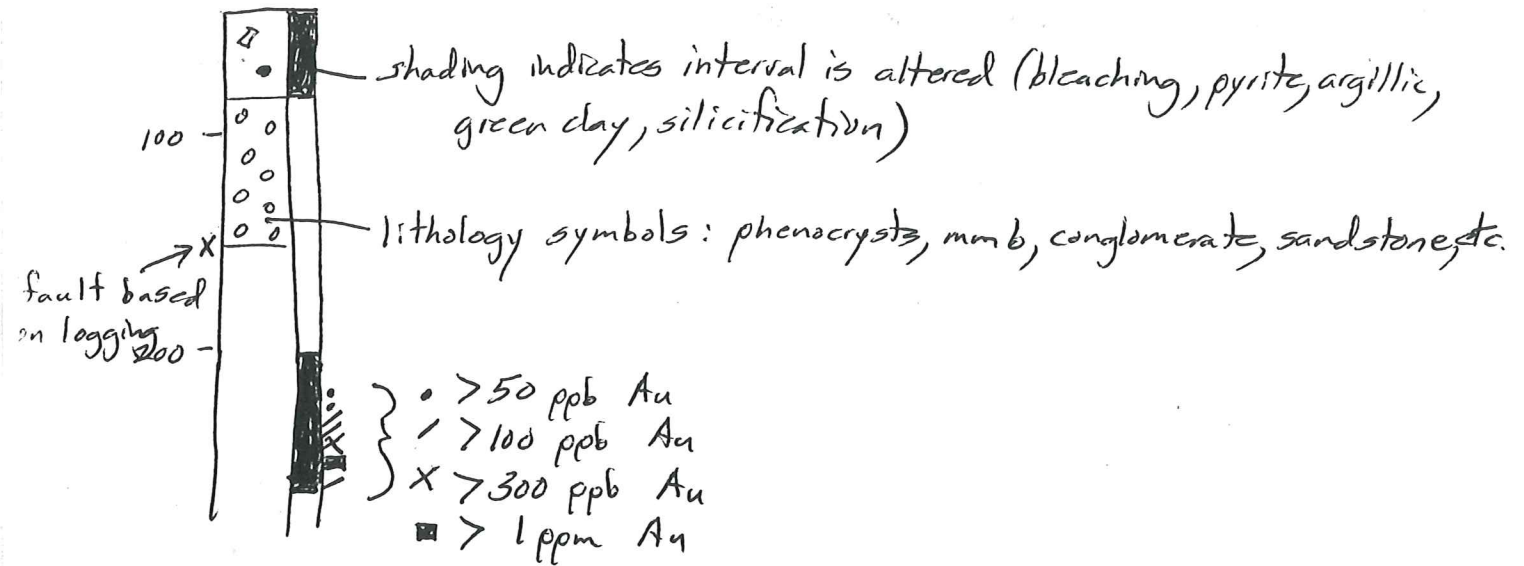 shading indicates interval is altered (bleaching, pyrite, argillic,
green clay, silicification)
100
lithology symbols: phenocrysts, mmb, conglomerate, sandstone, etc.
X
fault based
on logging
200
• >50 ppb Au
/ >100 ppb Au
X >300 ppb Au
■ > 1 ppm Au